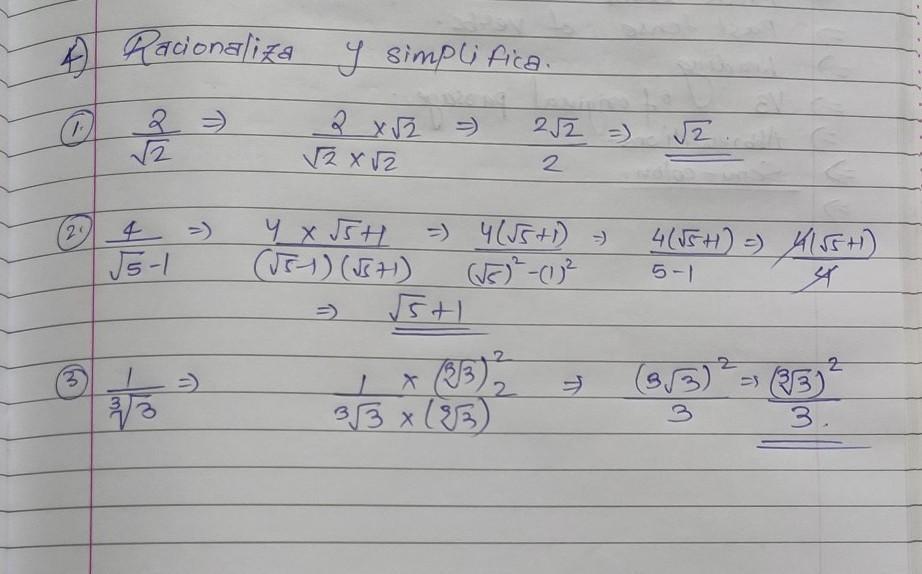 A) Racionaliza y simplifica.
1. 2/√2 ⇒ 2 × √2 / √2 × √2 ⇒ 2√2 / 2 ⇒ √2.
2. 4/√5-1 ⇒ 4 × √5+1 / (√5-1)(√5+1) ⇒ 4(√5+1) / (√5)² - (1)² ⇒ 4(√5+1) / 5-1 ⇒ 4(√5+1) / 4
⇒ √5+1
3 1/∛3 ⇒ 1 × (∛3)² / 3√3 × (∛3)² ⇒ (3√3)² / 3 ⇒ (∛3)² / 3.